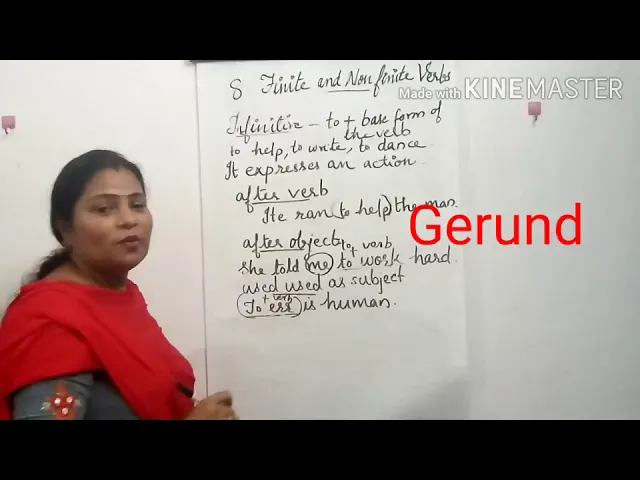 8 Finite and Non finite Verbs
Made with KINEMASTER
Infinitive - to + base form of
the verb
to help, to write, to dance
It expresses an action
after verb
He ran to help the man
Gerund
after object to + verb
She told me to work hard.
used used as subject
+ verb
To err is human.